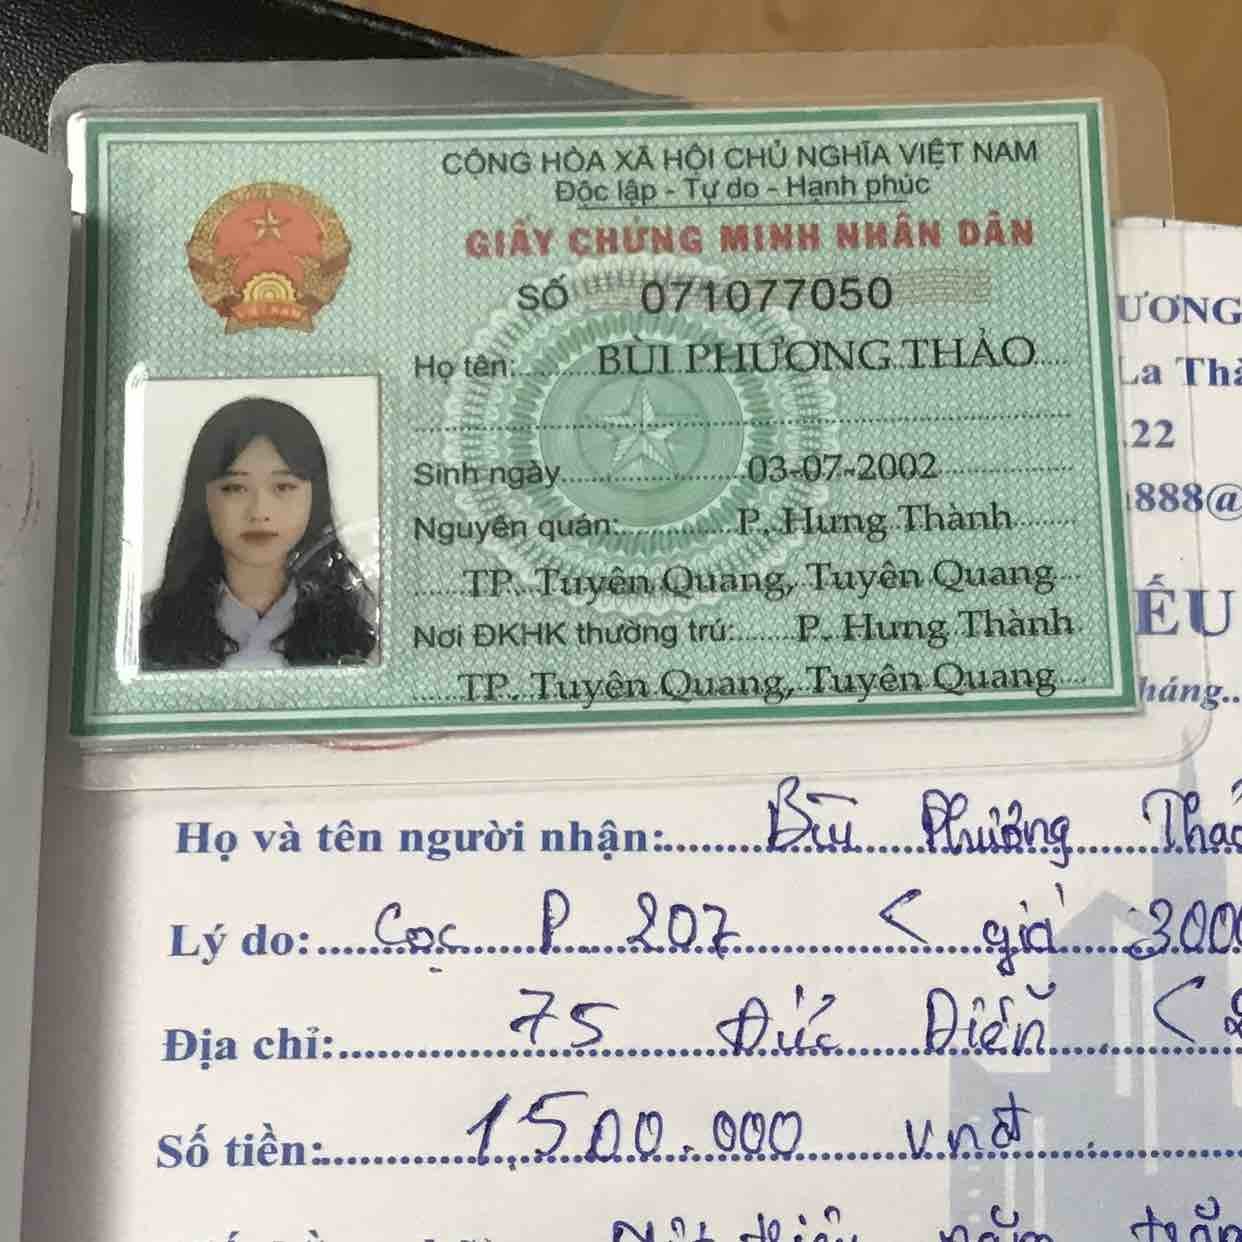 CỘNG HÒA XÃ HỘI CHỦ NGHĨA VIỆT NAM
Độc lập - Tự do - Hạnh phúc
GIẤY CHỨNG MINH NHÂN DÂN
SỐ 071077050
Họ tên: BÙI PHƯƠNG THẢO
Sinh ngày 03-07-2002
Nguyên quán: P. Hưng Thành
TP. Tuyên Quang, Tuyên Quang
Nơi ĐKHK thường trú: P. Hưng Thành
TP. Tuyên Quang, Tuyên Quang
ƯƠNG
La Thà
22
888@
ẾU
háng..
Họ và tên người nhận: Bùi Phương Thảo
Lý do: Cọc P 207 < giá 300
Địa chỉ: 75 Đức Diễn <
Số tiền: 1,500.000 vnđ